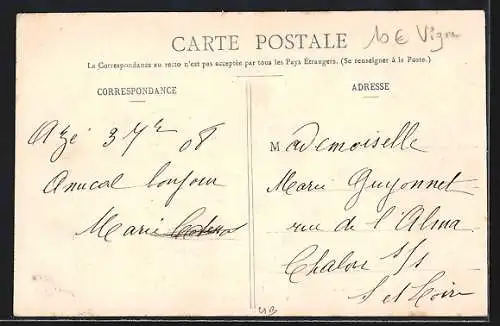 10 € Vigne
CARTE POSTALE
La Correspondance au recto n'est pas acceptée par tous les Pays Étrangers. (Se renseigner à la Poste.)
CORRESPONDANCE
Azé 3 7bre 08
Amical bonjour
Marie
ADRESSE
Mademoiselle
Marie Guyonnet
rue de l'Alma
Chalon s/s
S et Loire